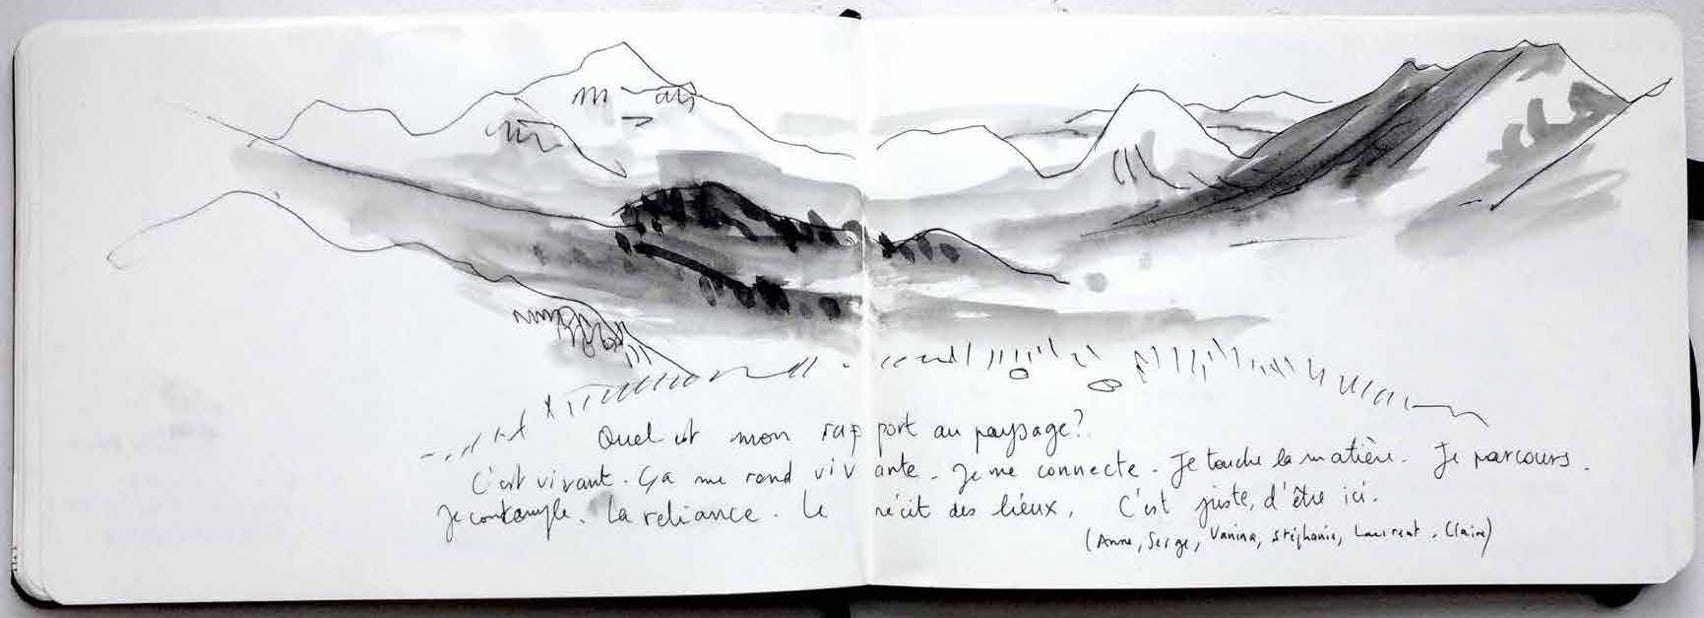 Quel est mon rapport au paysage?
C'est vivant. Ça me rend vivante. Je me connecte. Je touche la matière. Je parcours.
Je contemple. La reliance. Le récit des lieux. C'est juste, d'être ici.
(Anne, Serge, Vanina, Stéphanie, Laurent, Claire)